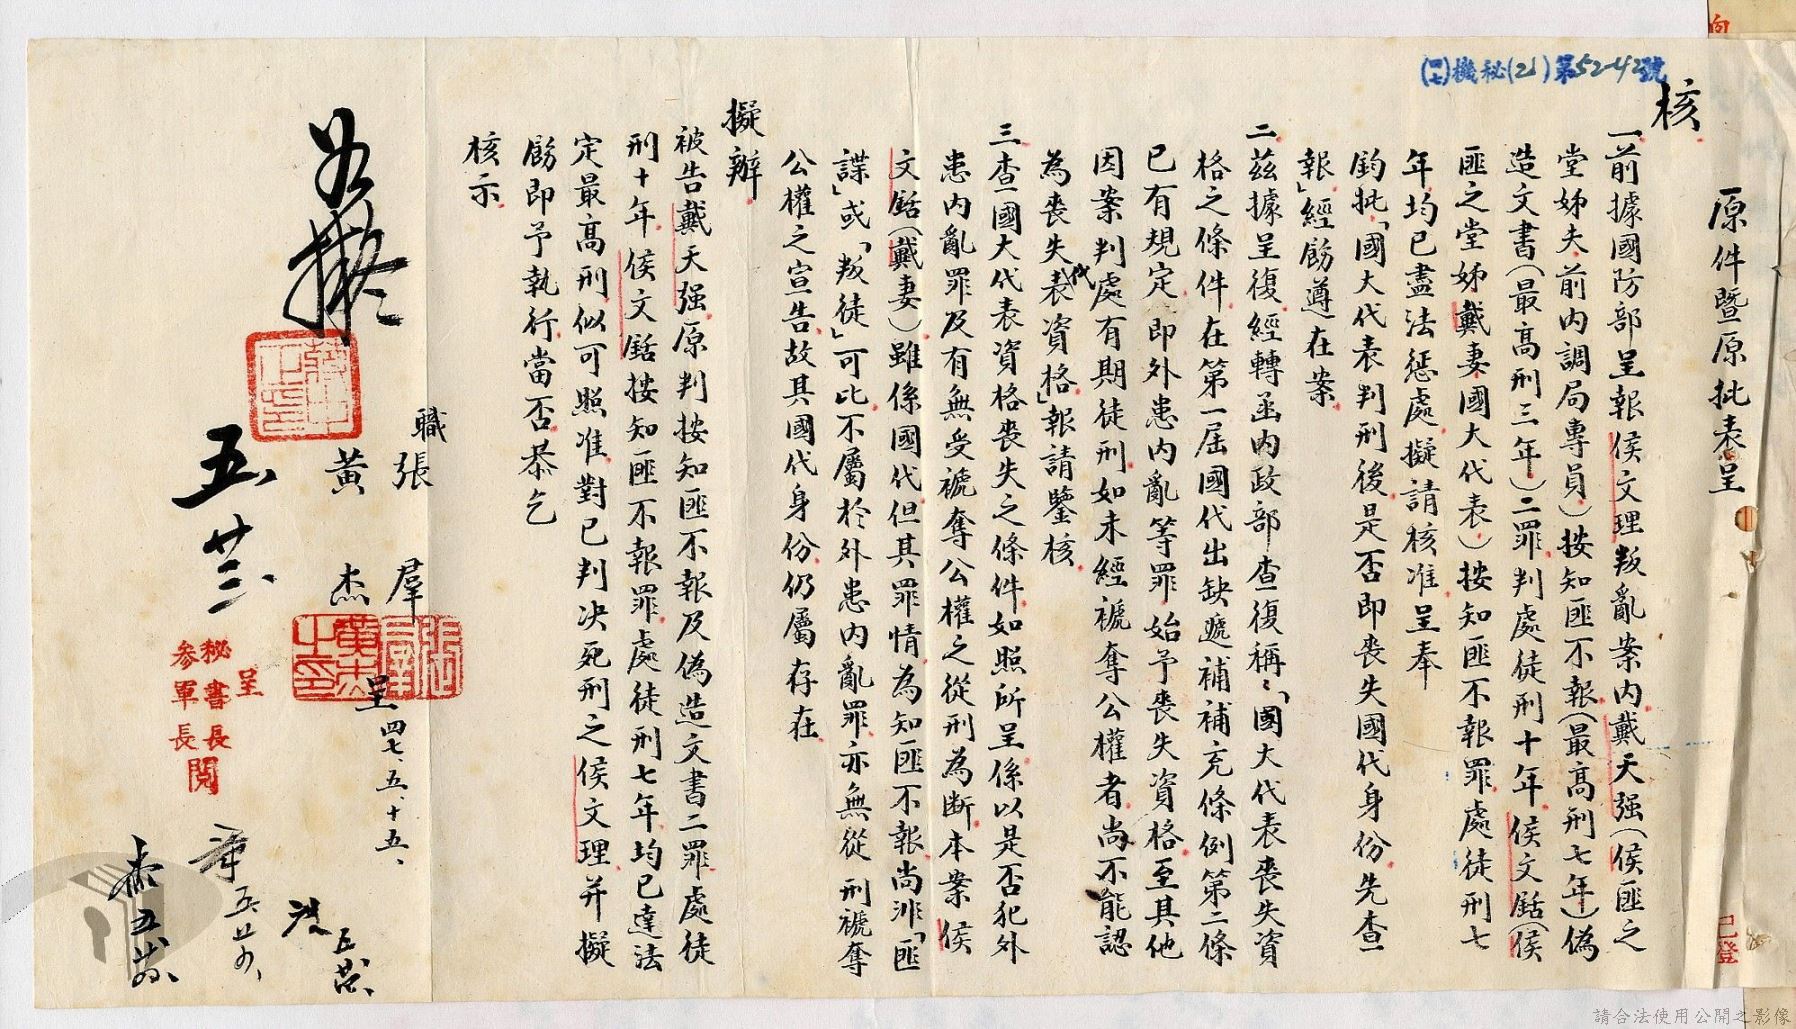 (四七)機秘(21)第52-42號
原件暨原批表呈
核
一前據國防部呈報侯文理叛亂案內戴天强(侯匪之
堂姊夫前內調局專員)按知匪不報(最高刑七年)偽
造文書(最高刑三年)二罪判處徒刑十年侯文銛(侯
匪之堂姊戴妻國大代表)按知匪不報罪處徒刑七
年均已盡法惩處擬請核准呈奉
鈞批「國大代表判刑後是否即丧失國代身份先查
報」經飭遵在案
二茲據呈復經轉函內政部查復稱:「國大代表喪失資
格之條件在第一屆國代出缺遞補補充條例第二條
已有規定即外患內亂等罪始予喪失資格至其他
因案判處有期徒刑如未經褫奪公權者尚不能認
為喪失代表資格」報請鑒核
三查國大代表資格喪失之條件如照所呈係以是否犯外
患內亂罪及有無受褫奪公權之從刑為断本案侯
文銛(戴妻)雖係國代但其罪情為知匪不報尚非「匪
諜」或「叛徒」可比不屬於外患內亂罪亦無從刑褫奪
公權之宣告故其國代身份仍屬存在
擬辦
被告戴天强原判按知匪不報及偽造文書二罪處徒
刑十年侯文銛按知匪不報罪處徒刑七年均已達法
定最高刑似可照准對已判决死刑之侯文理并擬
飭即予執行當否恭乞
核示
職張羣
黃杰
呈四七、五、十五、
如擬
五廿三
呈
秘書長
參軍長閱
已登
請合法使用公開之影像